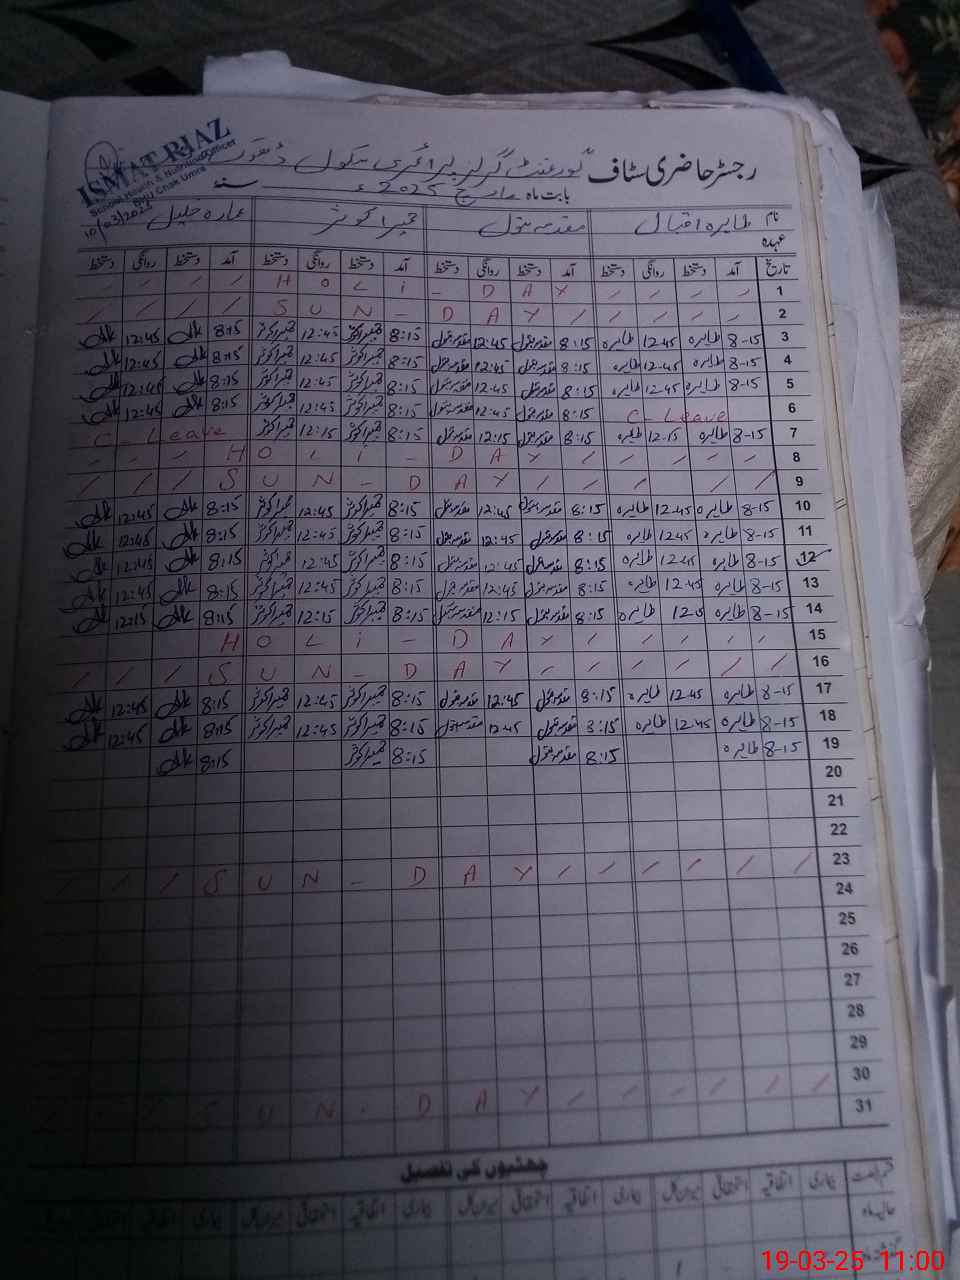 ISMAT RIAZ
School Health & Nutrition Officer
BHU Chak Umra
10/03/2025
رجسٹر حاضری سٹاف گورنمنٹ گرلز پرائمری سکول
بابت ماہ مارچ 2025ء سنہ
نام طاہرہ اقبال مقدسہ بتول حمیرا کوثر عمارہ جلیل
عہدہ
تاریخ آمد دستخط روانگی دستخط آمد دستخط روانگی دستخط آمد دستخط روانگی دستخط آمد دستخط روانگی دستخط
1 HOLi-DAY
2 SUN-DAY
3 8-15 طاہرہ 12-45 طاہرہ 8:15 مقدسہ بتول 12:45 مقدسہ بتول 8:15 حمیرا کوثر 12:45 حمیرا کوثر 8:15 12:45
4 8-15 طاہرہ 12-45 طاہرہ 8:15 مقدسہ بتول 12:45 مقدسہ بتول 8:15 حمیرا کوثر 12:45 حمیرا کوثر 8:15 12:45
5 8-15 طاہرہ 12-45 طاہرہ 8:15 مقدسہ بتول 12:45 مقدسہ بتول 8:15 حمیرا کوثر 12:45 حمیرا کوثر 8:15 12:45
6 C-Leave 8:15 مقدسہ بتول 12:45 مقدسہ بتول 8:15 حمیرا کوثر 12:45 حمیرا کوثر 8:15 12:45
7 8-15 طاہرہ 12-15 طاہرہ 8:15 مقدسہ بتول 12:15 مقدسہ بتول 8:15 حمیرا کوثر 12:15 حمیرا کوثر C-Leave
8 HOLi-DAY
9 SUN-DAY
10 8-15 طاہرہ 12-45 طاہرہ 8:15 مقدسہ بتول 12:45 مقدسہ بتول 8:15 حمیرا کوثر 12:45 حمیرا کوثر 8:15 12:45
11 8-15 طاہرہ 12-45 طاہرہ 8:15 مقدسہ بتول 12:45 مقدسہ بتول 8:15 حمیرا کوثر 12:45 حمیرا کوثر 8:15 12:45
12 8-15 طاہرہ 12-45 طاہرہ 8:15 مقدسہ بتول 12:45 مقدسہ بتول 8:15 حمیرا کوثر 12:45 حمیرا کوثر 8:15 12:45
13 8-15 طاہرہ 12-45 طاہرہ 8:15 مقدسہ بتول 12:45 مقدسہ بتول 8:15 حمیرا کوثر 12:45 حمیرا کوثر 8:15 12:45
14 8-15 طاہرہ طاہرہ 8:15 مقدسہ بتول 12:15 مقدسہ بتول 8:15 حمیرا کوثر 12:15 حمیرا کوثر 8:15 12:15
15 HOLi-DAY
16 SUN-DAY
17 8-15 طاہرہ 12-45 طاہرہ 8:15 مقدسہ بتول 12:45 مقدسہ بتول 8:15 حمیرا کوثر 12:45 حمیرا کوثر 8:15 12:45
18 8-15 طاہرہ 12-45 طاہرہ 8:15 مقدسہ بتول 12:45 مقدسہ بتول 8:15 حمیرا کوثر 12:45 حمیرا کوثر 8:15 12:45
19 8-15 طاہرہ 8:15 مقدسہ بتول 8:15 حمیرا کوثر 8:15
20
21
22
23 SUN-DAY
24
25
26
27
28
29
30 SUN-DAY
31
چھٹیوں کی تفصیل
بیماری اتفاقیہ استحقاقی بیماری اتفاقیہ استحقاقی بیماری اتفاقیہ استحقاقی بیماری اتفاقیہ
حالیہ ماہ
19-03-25 11:00